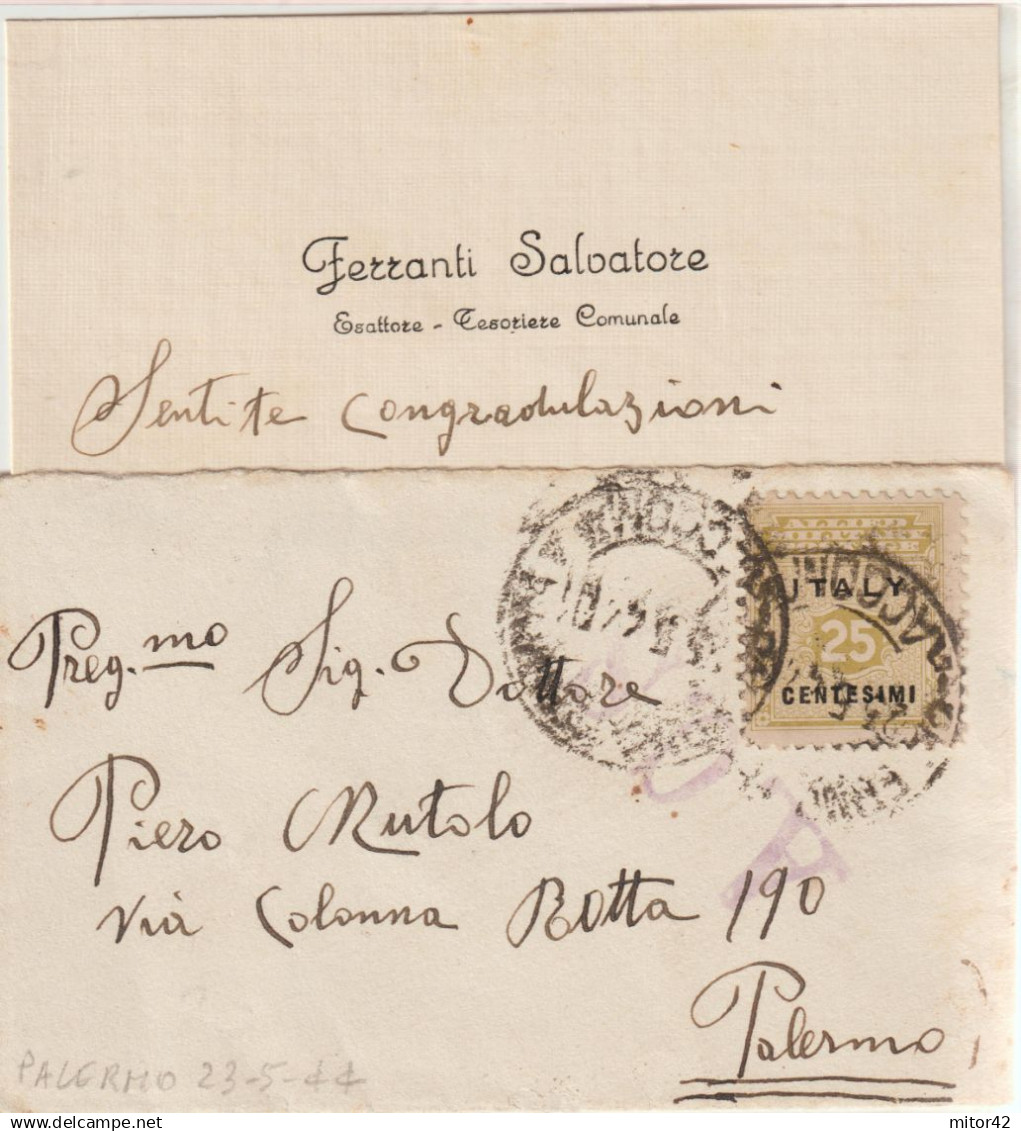 Ferranti Salvatore
Esattore - Tesoriere Comunale
Sentite Congradulazioni
ALLIED MILITARY POSTAGE
ITALY
25
CENTESIMI
Preg.mo Sig. Dottore
Piero Mutolo
Via Colonna Rotta 190
Palermo
PALERMO 23-5-44
mitor42